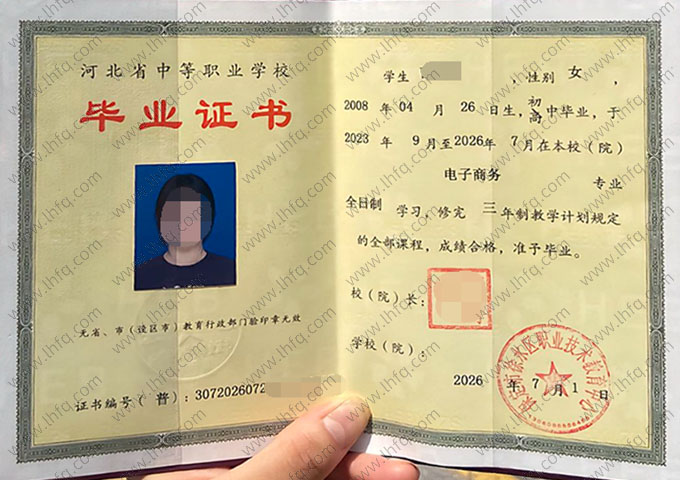 河北省中等职业学校
毕业证书
无省、市(设区市)教育行政部门验印章无效
证书编号(普):3072026072
学生
,性别 女 ,
2008年 04 月 26日生,初
高中毕业,于
2023 年 9月至2026年 7月在本校(院)
电子商务 专业
全日制 学习,修完 三年制教学计划规定
的全部课程,成绩合格,准予毕业。
校(院)长:
学校(院):
2026 年 7 月 1 日
水区职业技术教育中心
www.lhfq.com